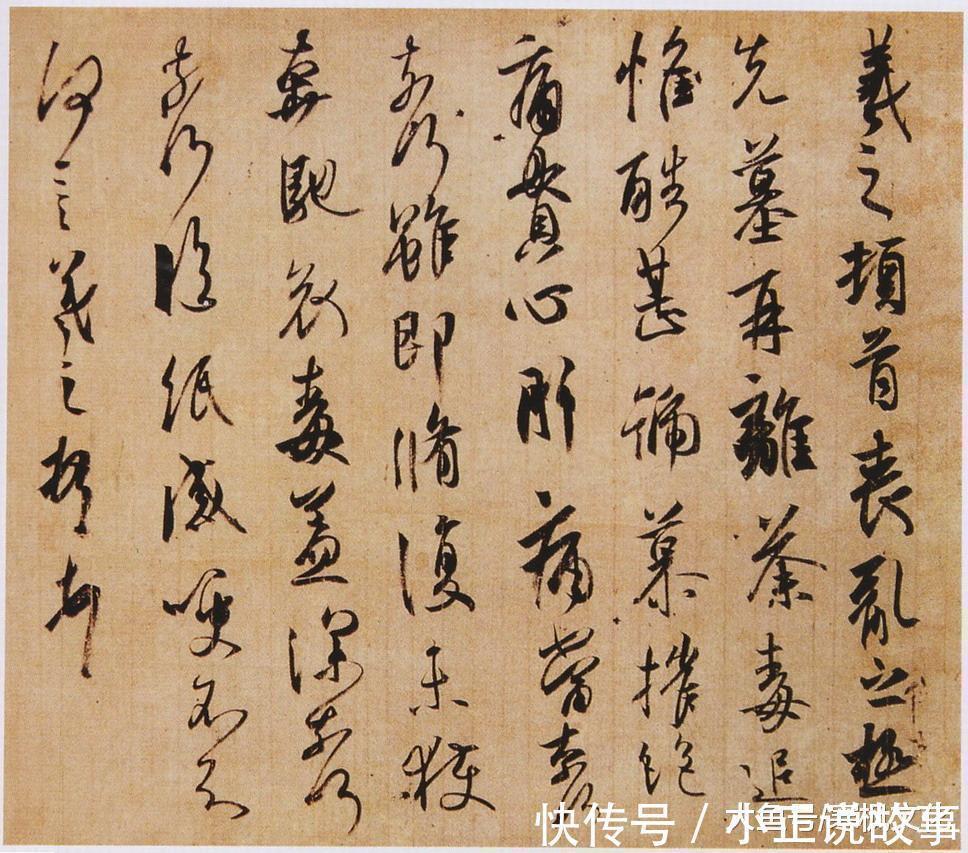 羲之頓首喪亂之極
先墓再離荼毒追
惟酷甚號慕摧絕
痛貫心肝痛當奈何
奈何雖即脩復未獲
奔馳哀毒益深奈何
奈何臨紙感哽不知
何言羲之頓首頓首
快传号 / 小正说故事